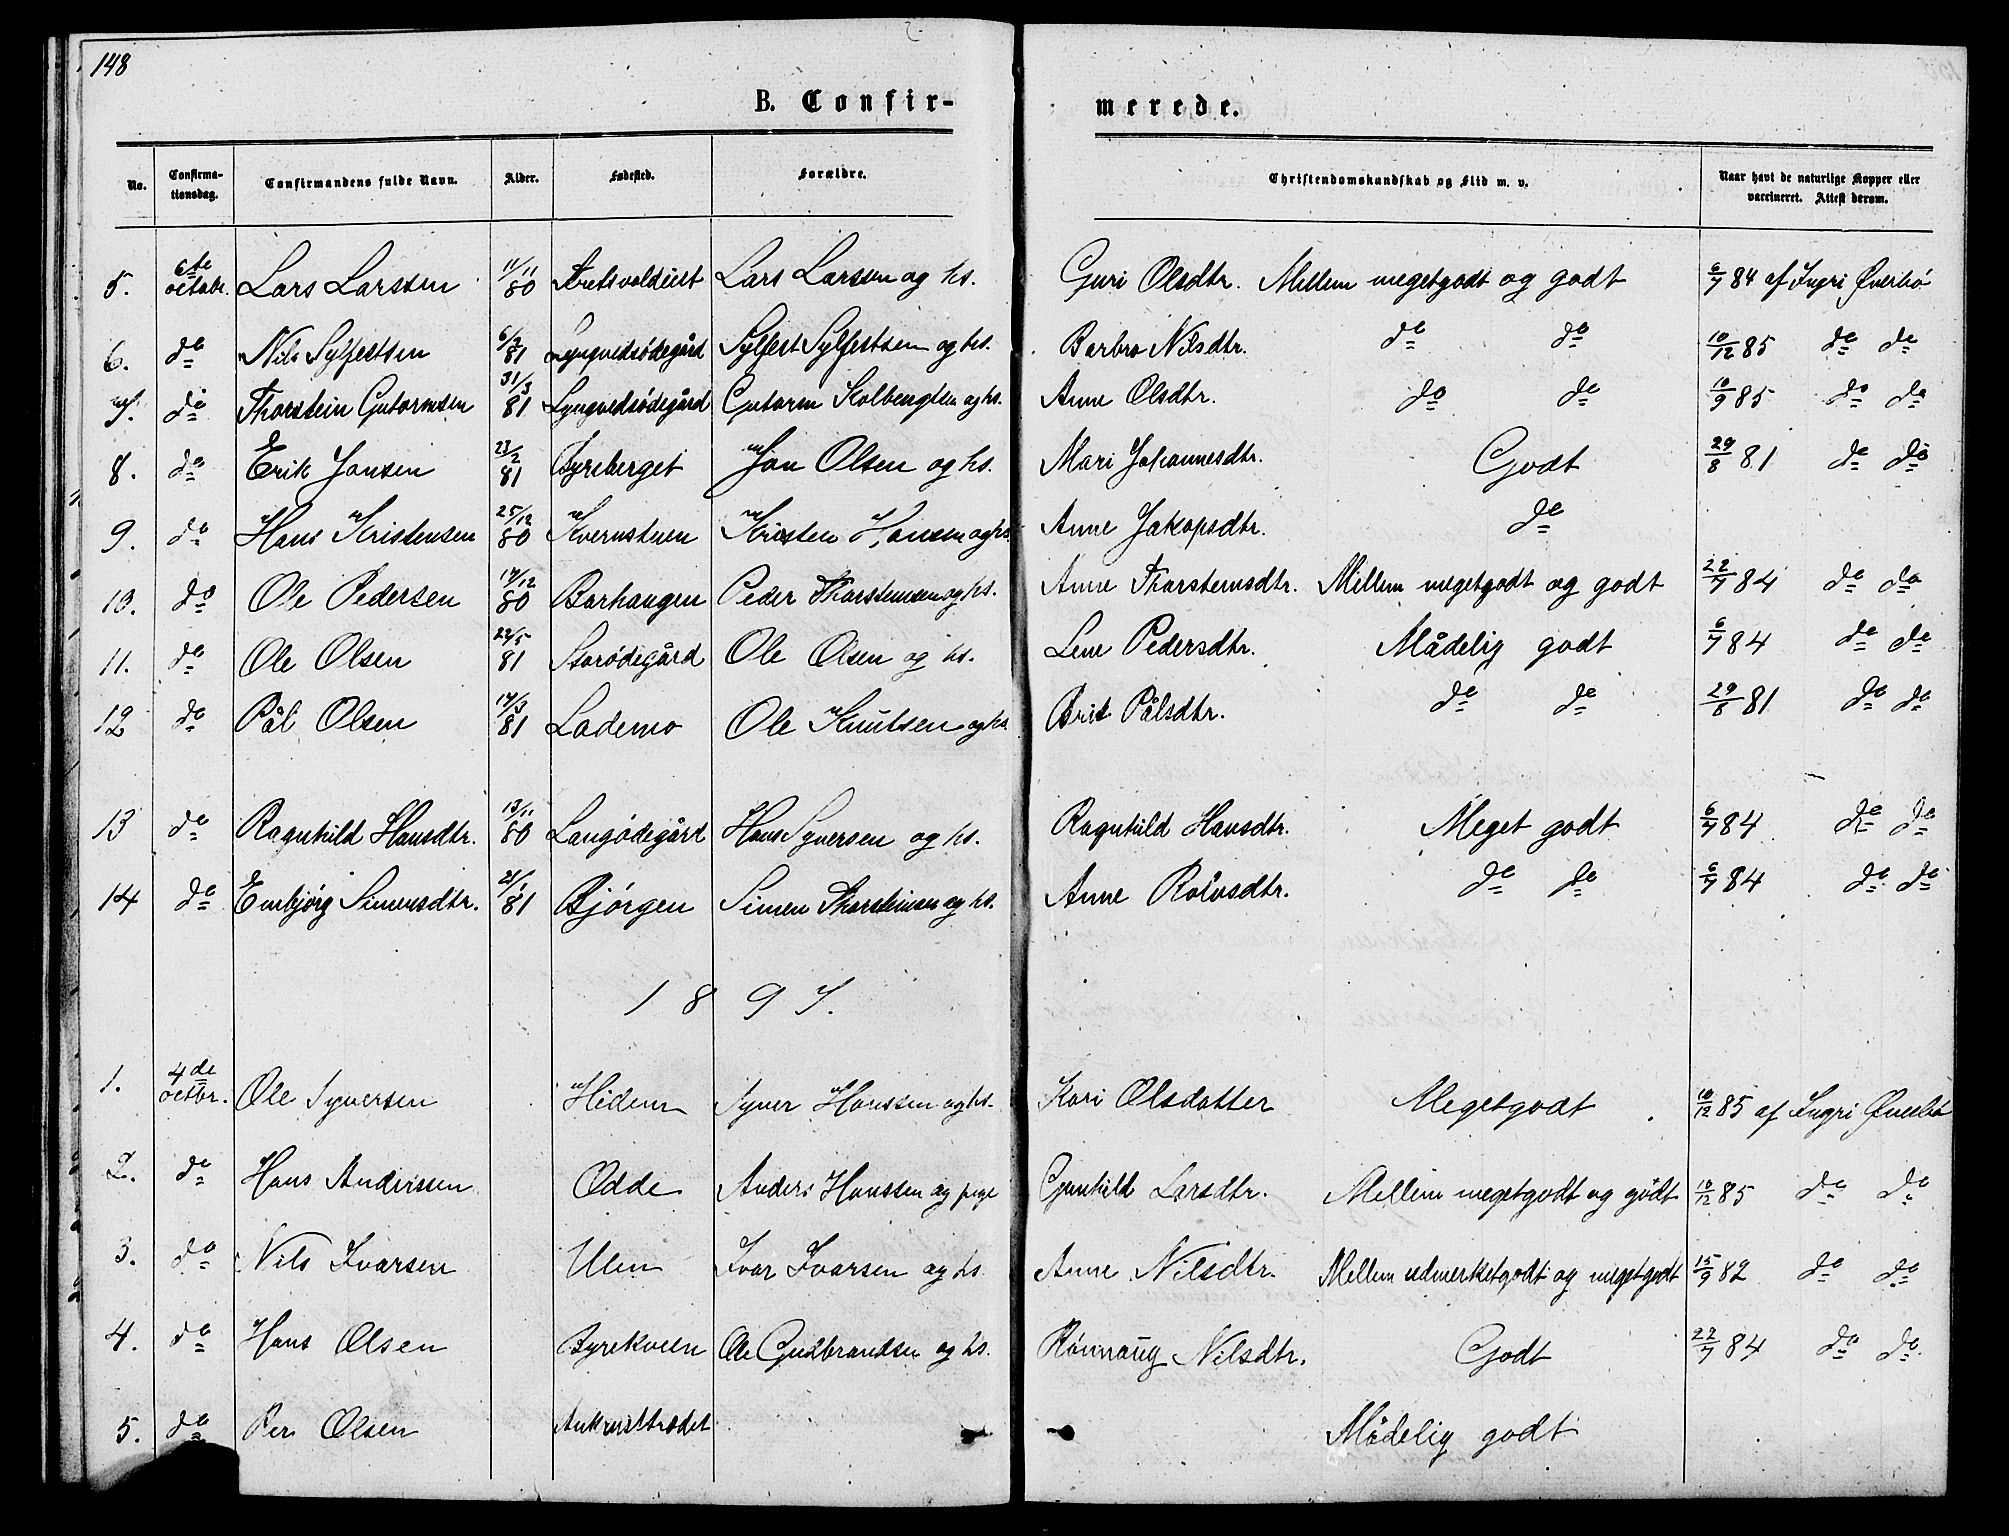 148
B. Confir-
merede.
No. Confirma-tionsdag. Confirmandens fulde Navn. Alder. Fødested. Forældre. Christendomskundskab og Flid m. v. Naar havt de naturlige Kopper eller vaccineret. Attest derom.
5. 6te octobr. Lars Larssen 11/11 80 Lars Larsen og hs. Guri Olsdtr. Mellem megetgodt og godt 6/7 84 af Ingri Øverbø
6. do Nils Sylfestsen 6/2 81 Lyngvedsødegård Sylfest Sylfestsen og hs. Barbro Nilsdtr. do do 10/12 85 do do
7. do Thorstein Gutormsen 31/3 81 Lyngvedsødegård Gutorm Kolbengtsen og hs. Anne Olsdtr. do do 10/9 85 do do
8. do Erik Jonsen 23/2 81 Byreberget Jon Olsen og hs. Mari Johannesdtr. Godt 29/8 81 do do
9. do Hans Kristensen 25/12 80 Kvernstuen Kristen Hansen og hs. Anne Jakopsdtr. do
10. do Ole Pedersen 17/12 80 Barhaugen Peder Thorstensen og hs. Anne Thorstensdtr. Mellem megetgodt og godt 22/7 84 do do
11. do Ole Olsen 22/5 81 Storødegård Ole Olsen og hs. Lene Pedersdtr. Mådelig godt 6/7 84 do do
12 do Pål Olsen 17/3 81 Lademo Ole Knutsen og hs. Brit Pålsdtr. do do 29/8 81 do do
13 do Ragnhild Hansdtr. 13/11 80 Langødegård Hans Syversen og hs. Ragnhild Hansdtr. Meget godt 6/7 84 do do
14 do Embjørg Simensdtr. 21/1 81 Bjørgen Simen Thorsteinsen og hs. Anne Rolvsdtr. do do 6/7 84 do do
1897.
1. 4de octbr. Ole Syversen Hidem Syver Hanssen og hs. Kari Olsdatter Megetgodt 10/12 85 af Ingri Øverbø
2. do Hans Anderssen Odde Anders Hanssen og pige Gunhild Larsdtr. Mellem megetgodt og godt 10/12 85 do do
3. do Nils Ivarsen Ulen Ivar Ivarsen og hs. Anne Nilsdtr. Mellem udmerketgodt og megetgodt 15/9 82 do do
4. do Hans Olsen Byrekveen Ole Gulbrandsen og hs. Rønnaug Nilsdtr. Godt 22/7 84 do do
5. do Per Olsen Mådelig godt